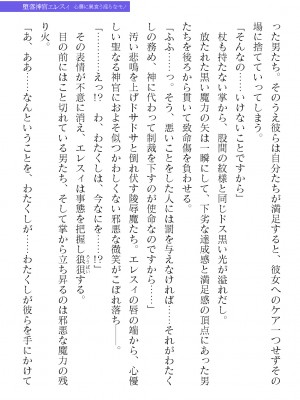 堕落神官エレスィ 心臓に巣食う淫らなモノ
った男たち。そのうえ彼らは自分たちが満足すると、彼女へのケア一つせずその
場に捨てていってしまう。
「そんなの……いけないことですから」
杖も持たない掌から、股間の紋様と同じドス黒い光が溢れだし。
放たれた黒い魔力の矢は一瞬にして、下劣な達成感と満足感の頂点にあった男
たちを後ろから貫いて致命傷を負わせる。
「ふふ……っ。そう、悪いことをした人には罰を与えなければ……それがわたく
しの務め、神に代わって制裁を下すのが使命なのですから……」
汚い悲鳴を上げドサドサと倒れ伏す陵辱魔たち。エレスィの唇の端から、心優
しい聖なる神官におよそ似つかわしくない邪悪な微笑がこぼれ落ち――。
「……えっ!? わ、わたくしは、今なにを……!?」
その表情が不意に消え、エレスィは事態を把握し狼狽する。
ろうばい
目の前にはこと切れている男たち、そして掌から立ち昇るのは邪悪な魔力の残
り火。
「あ、ああ……なんということを、わたくしが……わたくしが彼らを手にかけて